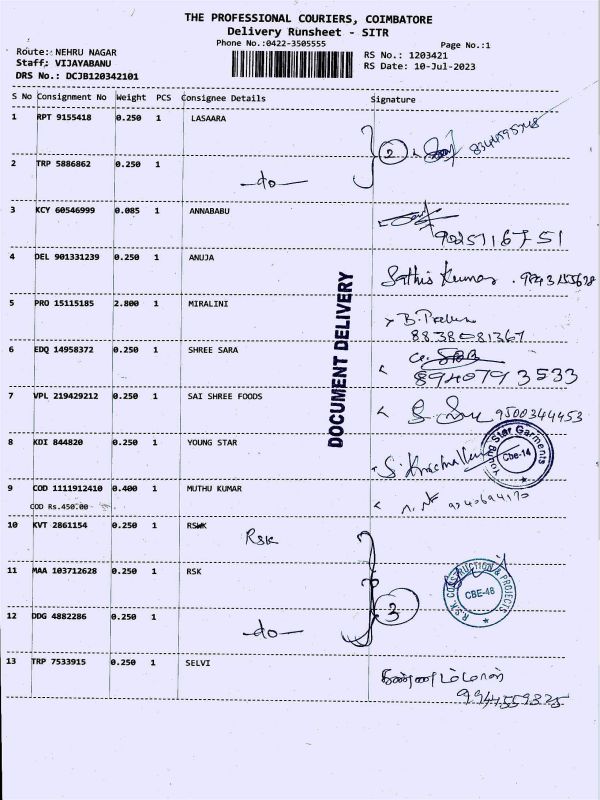 THE PROFESSIONAL COURIERS, COIMBATORE
Delivery Runsheet - SITR
Phone No.:0422-3505555
Page No.:1
Route: NEHRU NAGAR
RS No.: 1203421
Staff: VIJAYABANU
RS Date: 10-Jul-2023
DRS No.: DCJB120342101
S No Consignment No Weight PCS Consignee Details Signature
1 RPT 9155418 0.250 1 LASAARA
2
2 TRP 5886862 0.250 1
-do-
3 KCY 60546999 0.085 1 ANNABABU
9025711675 1
4 DEL 901331239 0.250 1 ANUJA
Sathis Kumar
5 PRO 15115185 2.800 1 MIRALINI
8838081367
6 EDQ 14958372 0.250 1 SHREE SARA
8940793533
7 VPL 219429212 0.250 1 SAI SHREE FOODS
9500344453
8 KDI 844820 0.250 1 YOUNG STAR
Young Star Garments
Cbe-14
9 COD 1111912410 0.400 1 MUTHU KUMAR
COD Rs.450.00
10 KVT 2861154 0.250 1
RSK
11 MAA 103712628 0.250 1 RSK
R.S.K. CONSTRUCTION & PROJECTS
CBE-48
12 DDG 4882286 0.250 1
-do-
3
13 TRP 7533915 0.250 1 SELVI
DOCUMENT DELIVERY